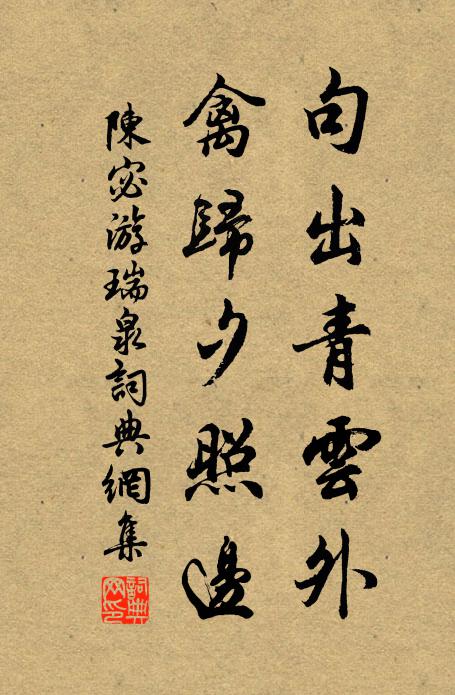 句出青雲外
禽歸夕照邊
陳宓游瑞泉詞典網集
詞典網印